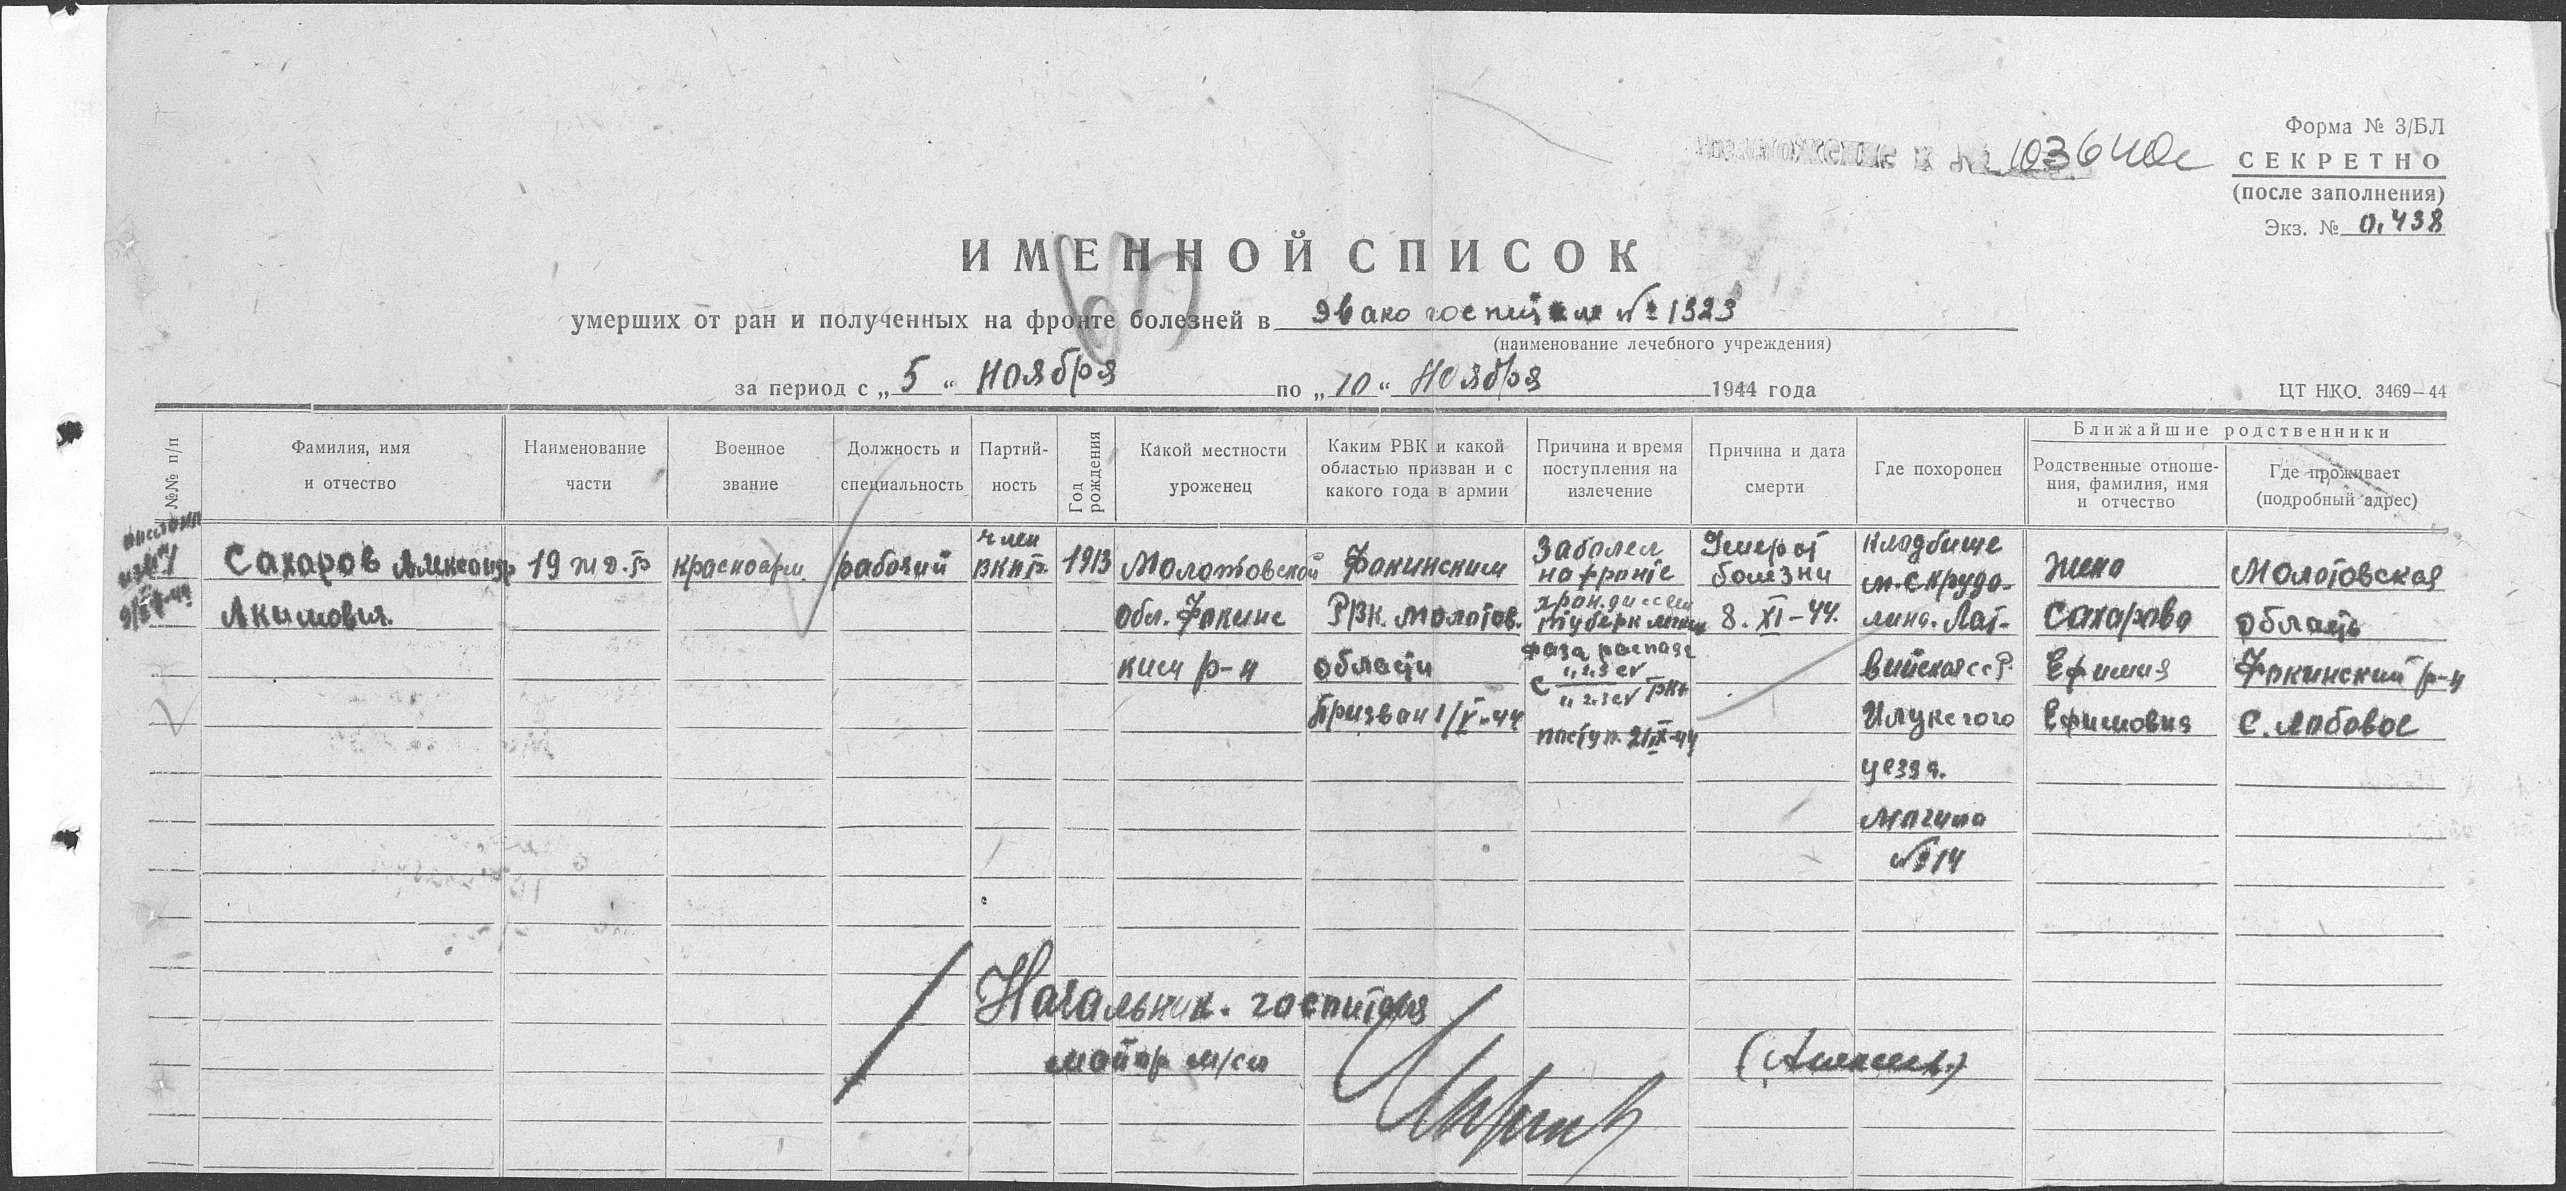 Форма № 3/БЛ
103640с
СЕКРЕТНО
(после заполнения)
Экз. № 0,438
ИМЕННОЙ СПИСОК
умерших от ран и полученных на фронте болезней в Эвако госпитале № 1323
(наименование лечебного учреждения)
за период с „ 5 “ ноября по „ 10 “ ноября 1944 года
ЦТ НКО. 3469—44
№№ п/п
Фамилия, имя
и отчество
Наименование
части
Военное
звание
Должность и
специальность
Партий-
ность
Год
рождения
Какой местности
уроженец
Каким РВК и какой
областью призван и с
какого года в армии
Причина и время
поступления на
излечение
Причина и дата
смерти
Где похоронен
Ближайшие родственники
Родственные отноше-
ния, фамилия, имя
и отчество
Где проживает
(подробный адрес)
Сахаров Александр
Акимович.
19 ж.д.
красноарм.
рабочий
член
ВКП
1913
Молотовской
обл. Фокинс
ким р-н
Фокинским
РВК. Молотов.
области
Призван
Заболел
на фронте
фаза распада
поступ.
Умер от
болезни
8. XI-44.
Кладбище
м. Скрудо-
лино. Лат-
вийская ССР
Илукстого
уезда.
Могила
№ 14
жена
Сахарова
Ефимия
Ефимовна
Молотовская
область
Фокинский р-н
с. Лобовое
Начальник. госпиталя
майор м/сл